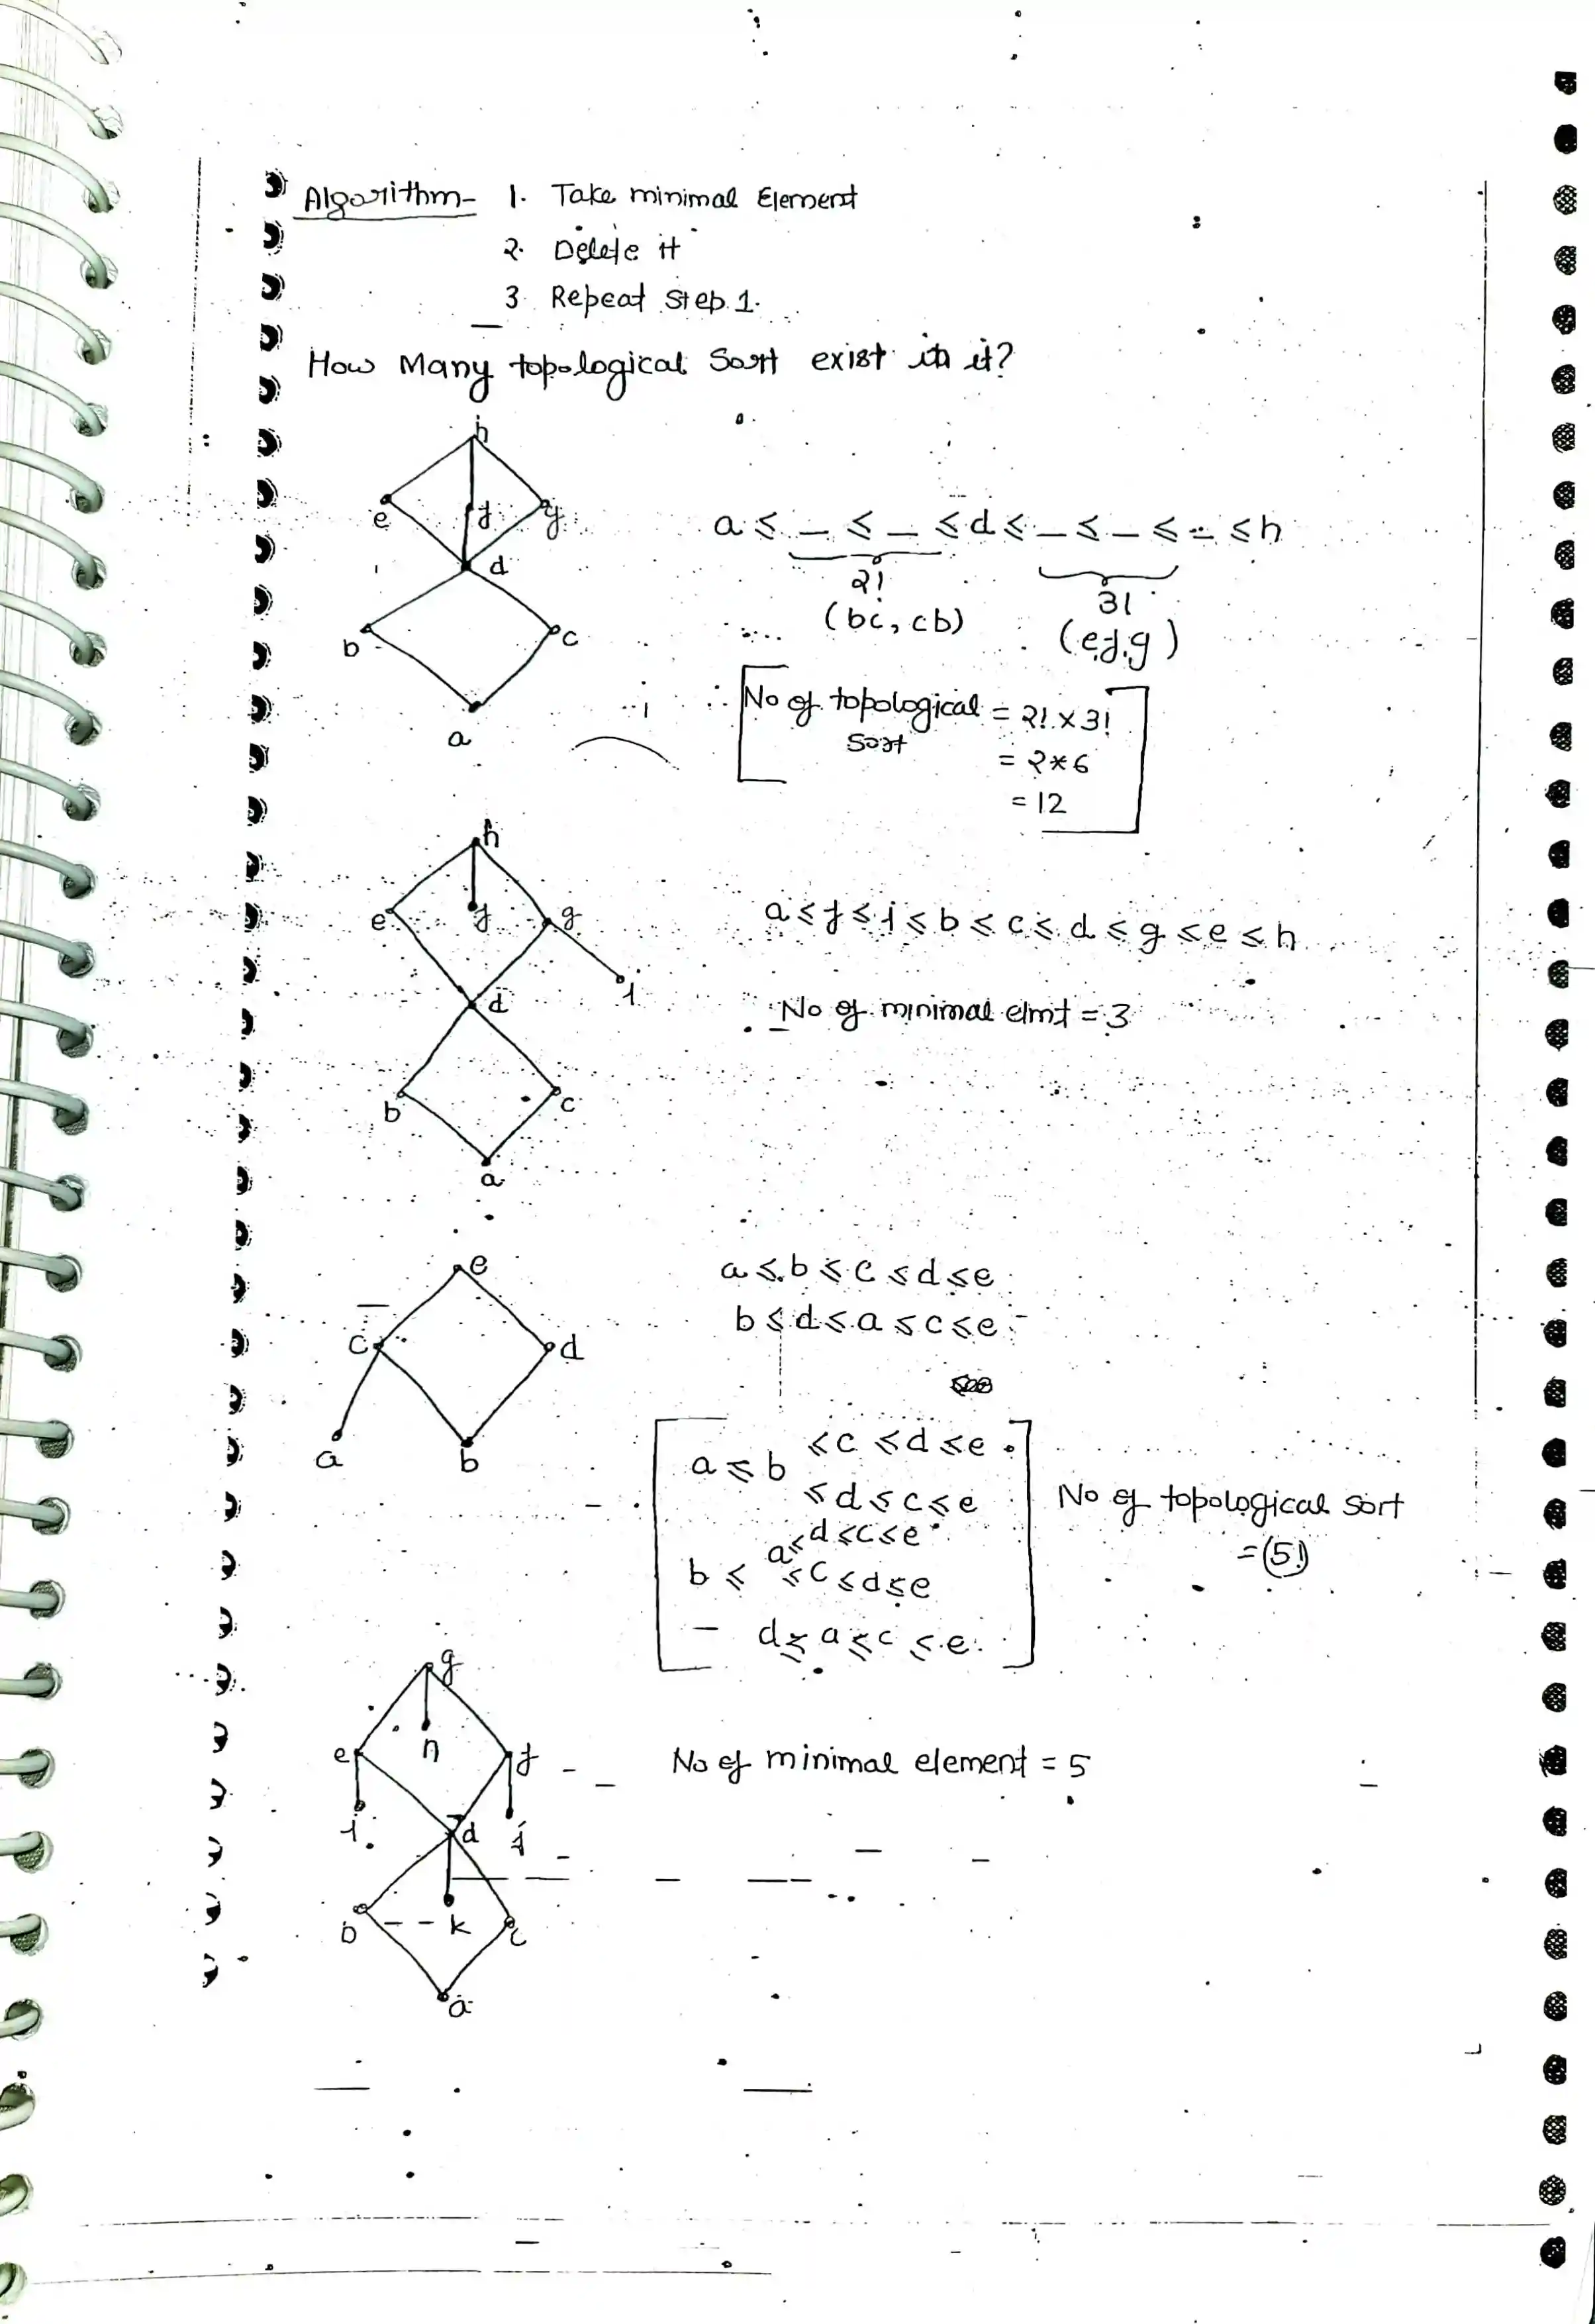 Algorithm- 1. Take minimal Element
2. Delete it
3. Repeat step 1.
How Many topological Sort exist in it?
h
e f g
d
b c
a
a ≤ _ ≤ _ ≤ d ≤ _ ≤ _ ≤ _ ≤ h
2! 3!
(bc, cb) (e,f,g)
∴ No of topological sort = 2! × 3!
= 2*6
= 12
h
e f g
d i
b c
a
a ≤ f ≤ i ≤ b ≤ c ≤ d ≤ g ≤ e ≤ h
No of minimal elmt = 3
e
c d
a b
a ≤ b ≤ c ≤ d ≤ e
b ≤ d ≤ a ≤ c ≤ e
a ≤ b ≤ c ≤ d ≤ e
≤ d ≤ c ≤ e
b ≤ a ≤ d ≤ c ≤ e
≤ c ≤ d ≤ e
d ≤ a ≤ c ≤ e
No of topological sort
= (5)
g
e h f
i d j
b k c
a
No of minimal element = 5